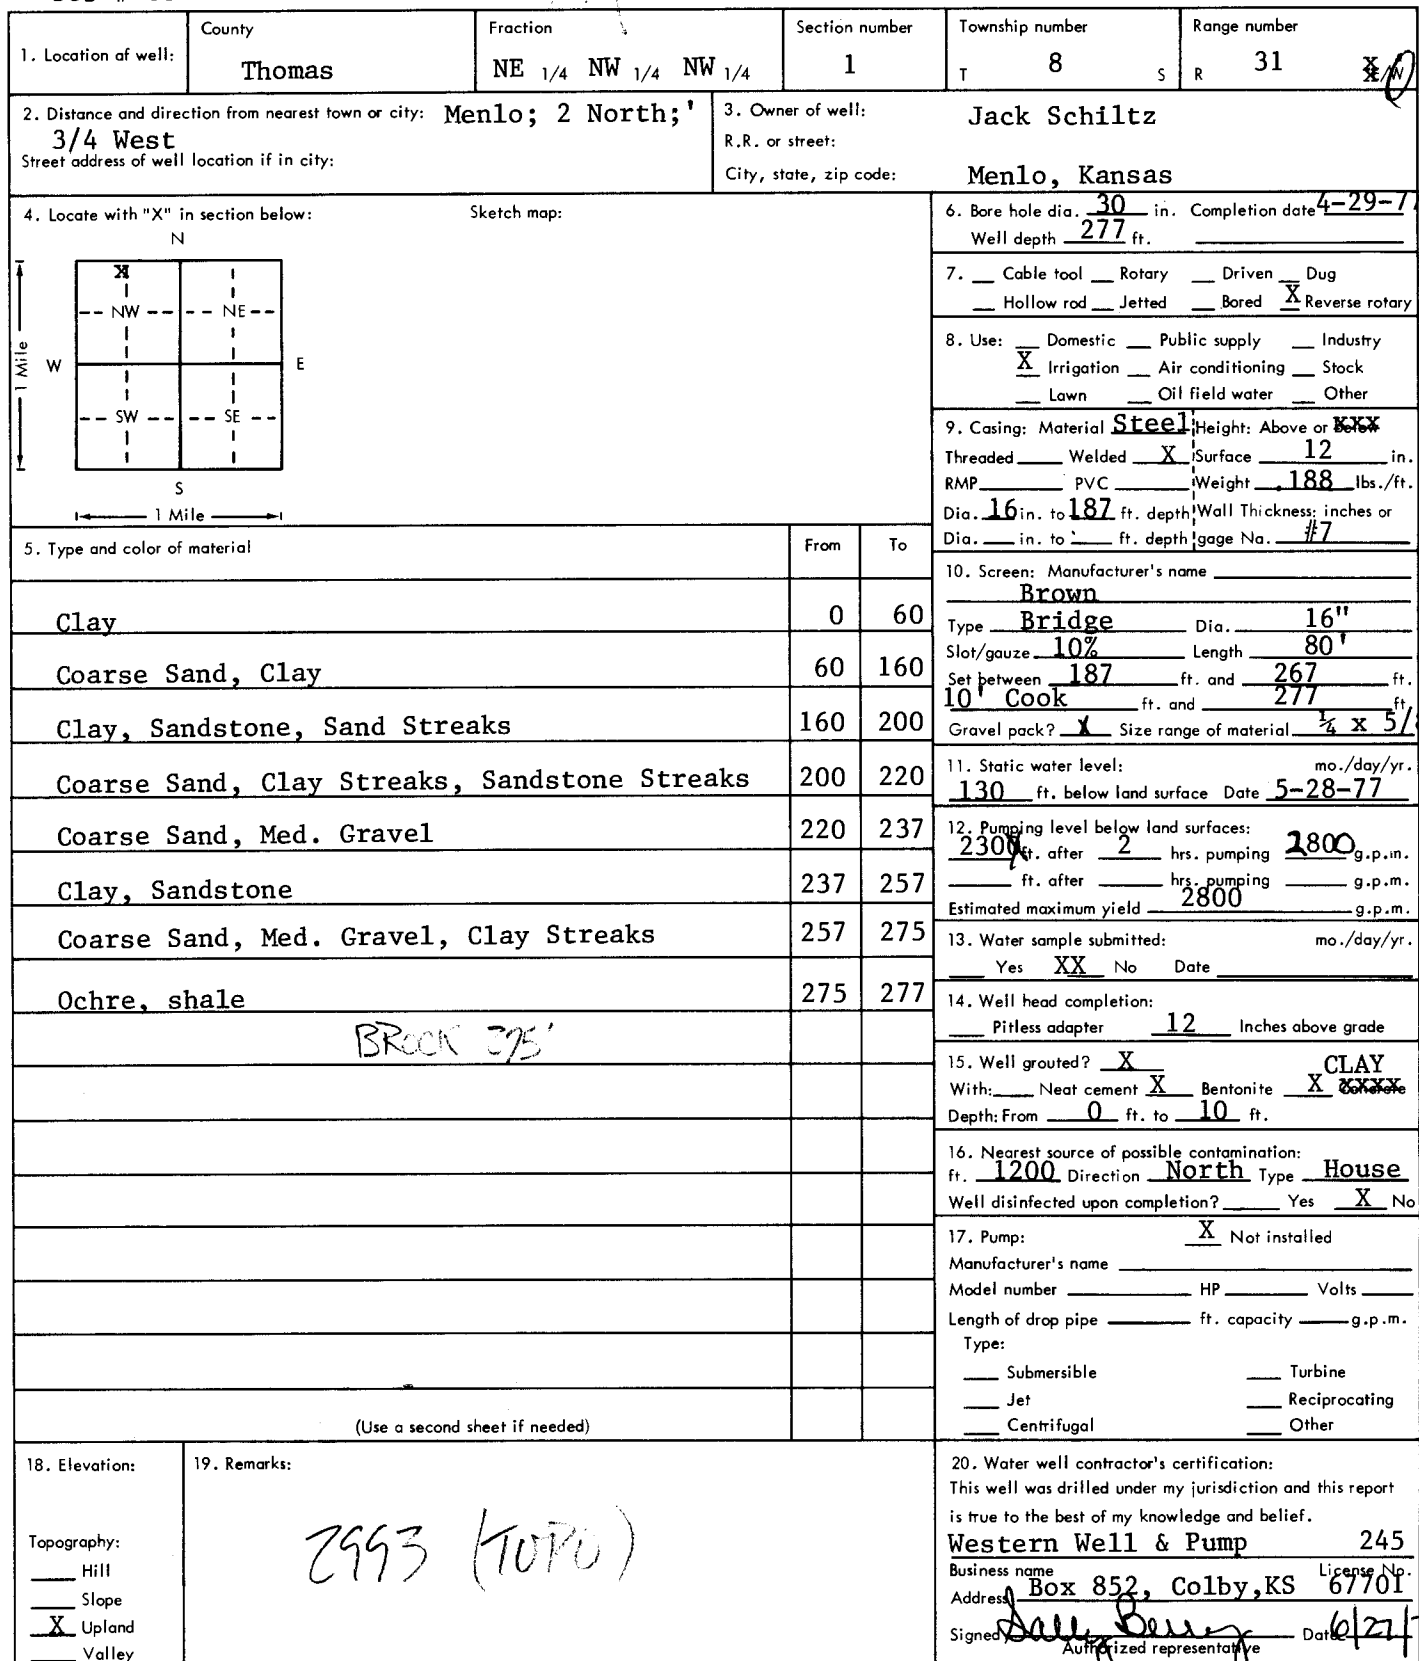 County Fraction Section number Township number Range number
1. Location of well: Thomas NE 1/4 NW 1/4 NW 1/4 1 T 8 S R 31
2. Distance and direction from nearest town or city: Menlo; 2 North;'
3/4 West
Street address of well location if in city:
3. Owner of well: Jack Schiltz
R.R. or street:
City, state, zip code: Menlo, Kansas
4. Locate with "X" in section below: Sketch map:
N
X
NW NE
W E
1 Mile
SW SE
S
1 Mile
5. Type and color of material From To
Clay 0 60
Coarse Sand, Clay 60 160
Clay, Sandstone, Sand Streaks 160 200
Coarse Sand, Clay Streaks, Sandstone Streaks 200 220
Coarse Sand, Med. Gravel 220 237
Clay, Sandstone 237 257
Coarse Sand, Med. Gravel, Clay Streaks 257 275
Ochre, shale 275 277
(Use a second sheet if needed)
6. Bore hole dia. 30 in. Completion date 4-29-77
Well depth 277 ft.
7. Cable tool Rotary Driven Dug
Hollow rod Jetted Bored X Reverse rotary
8. Use: Domestic Public supply Industry
X Irrigation Air conditioning Stock
Lawn Oil field water Other
9. Casing: Material Steel Height: Above or
Threaded Welded X Surface 12 in.
RMP PVC Weight .188 lbs./ft.
Dia. 16 in. to 187 ft. depth Wall Thickness: inches or
Dia. in. to ft. depth gage No. #7
10. Screen: Manufacturer's name
Brown
Type Bridge Dia. 16"
Slot/gauze 10% Length 80'
Set between 187 ft. and 267 ft.
10' Cook ft. and 277 ft.
Gravel pack? X Size range of material ¼ x 5/
11. Static water level: mo./day/yr.
130 ft. below land surface Date 5-28-77
12. Pumping level below land surfaces:
230 ft. after 2 hrs. pumping 2800 g.p.m.
ft. after hrs. pumping g.p.m.
Estimated maximum yield 2800 g.p.m.
13. Water sample submitted: mo./day/yr.
Yes XX No Date
14. Well head completion:
Pitless adapter 12 Inches above grade
15. Well grouted? X CLAY
With: Neat cement X Bentonite X
Depth: From 0 ft. to 10 ft.
16. Nearest source of possible contamination:
ft. 1200 Direction North Type House
Well disinfected upon completion? Yes X No
17. Pump: X Not installed
Manufacturer's name
Model number HP Volts
Length of drop pipe ft. capacity g.p.m.
Type:
Submersible Turbine
Jet Reciprocating
Centrifugal Other
18. Elevation:
Topography:
Hill
Slope
X Upland
Valley
19. Remarks:
2993 (TOPO)
20. Water well contractor's certification:
This well was drilled under my jurisdiction and this report
is true to the best of my knowledge and belief.
Western Well & Pump 245
Business name License No.
Address Box 852, Colby,KS 67701
Signed Date 6/27/
Authorized representative